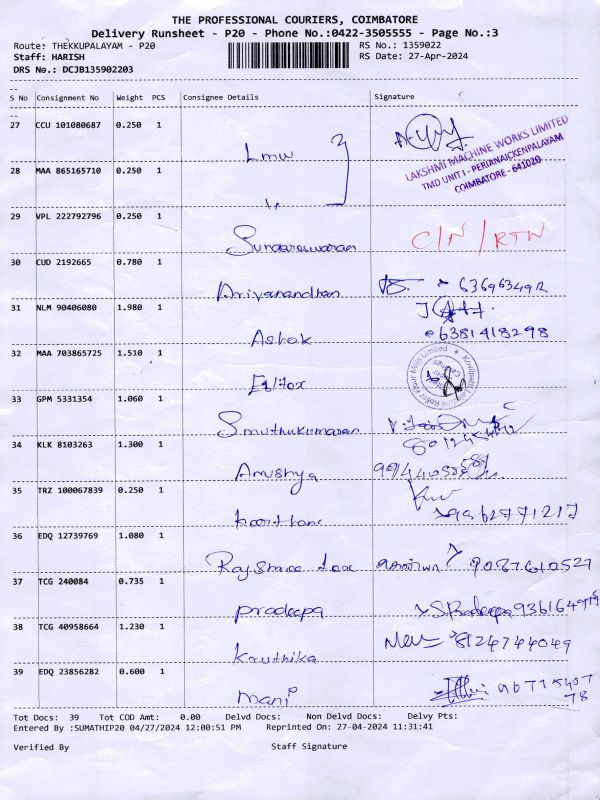 THE PROFESSIONAL COURIERS, COIMBATORE
Delivery Runsheet - P20 - Phone No.:0422-3505555 - Page No.:3
Route: THEKKUPALAYAM - P20 RS No.: 1359022
Staff: HARISH RS Date: 27-Apr-2024
DRS No.: DCJB135902203
S No Consignment No Weight PCS Consignee Details Signature
27 CCU 101080687 0.250 1
Lmw
LAKSHMI MACHINE WORKS LIMITED
TMD UNIT I - PERIANAICKENPALAYAM
COIMBATORE - 641020
28 MAA 865165710 0.250 1
29 VPL 222792796 0.250 1
Sundareswaran C/N/RTN
30 CUD 2192665 0.780 1
Arivanandhan 636963492
31 NLM 90406080 1.980 1
Ashok 6381418298
32 MAA 703865725 1.510 1
33 GPM 5331354 1.060 1
Smuthukumaran
34 KLK 8103263 1.300 1
Anushya
35 TRZ 100067839 0.250 1
9962771217
36 EDQ 12739769 1.080 1
Rajshree 9087610527
37 TCG 240084 0.735 1
Pradeepa S.Pradeepa
38 TCG 40958664 1.230 1
Kruthika 8124744049
39 EDQ 23856282 0.600 1
Mani
Tot Docs: 39 Tot COD Amt: 0.00 Delvd Docs: Non Delvd Docs: Delvy Pts:
Entered By :SUMATHIP20 04/27/2024 12:00:51 PM Reprinted On: 27-04-2024 11:31:41
Verified By Staff Signature